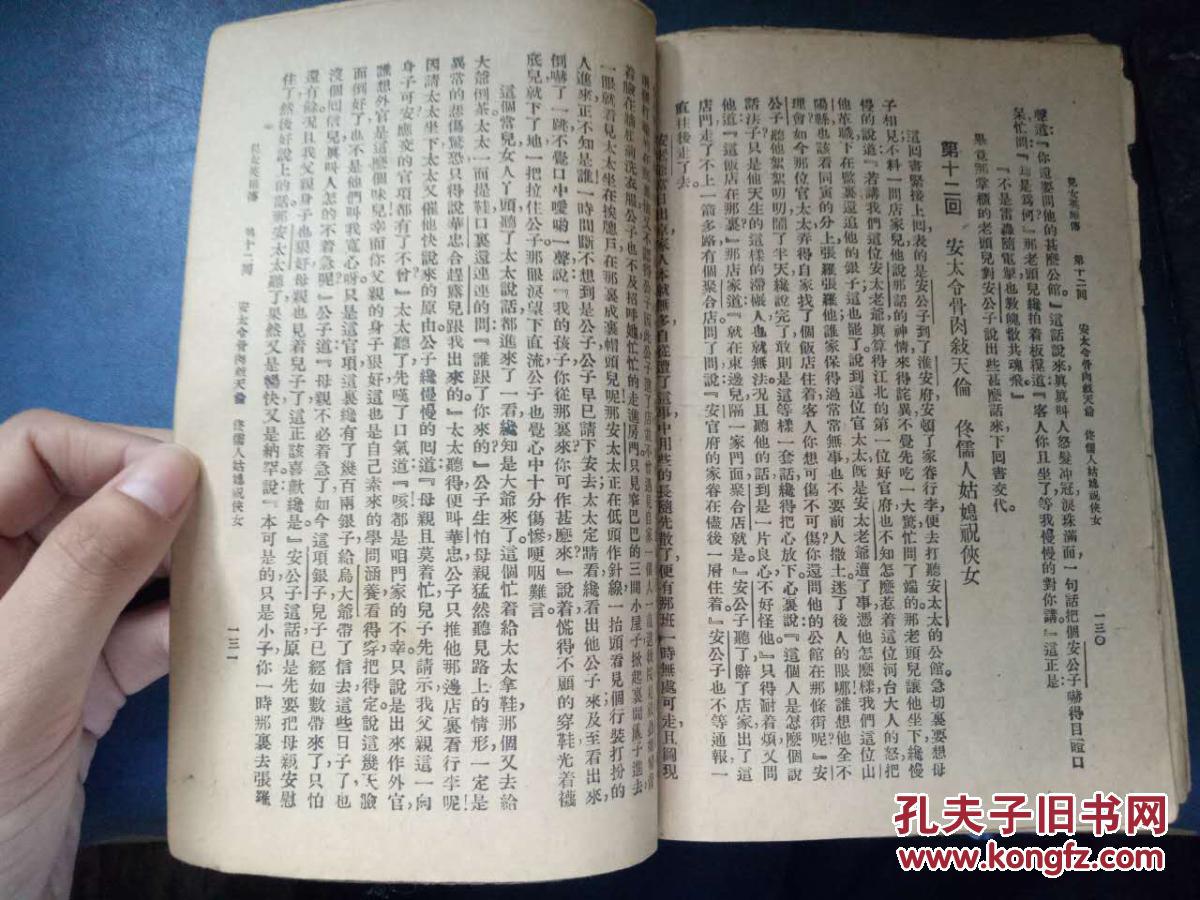 兒女英雄傳　第十二回　安太令骨肉敍天倫　佟儒人姑媳祝俠女　一三〇
聲道：『你還要問他的甚麼公館』這話說來眞眞叫人怒髮冲冠淚珠滿面一句話把個安公子嚇得目瞪口
呆忙問『是爲何』那老頭兒纔拍着板櫈道『客人你且坐了等我慢慢的對你講。』這正是
『不是雷轟隨電掣也教魄散共魂飛』
畢竟那掌櫃的老頭兒對安公子說出些甚麼話來下回書交代。
第十二回　安太令骨肉敍天倫　佟儒人姑媳祝俠女
這回書緊接上回表的是安公子到了淮安府安頓了家眷行李便去打聽安太太的公館。急切裏要想母
子相見不料一問店家兒他說那話的神情來得詫異不覺先吃一大驚忙問了端的那老頭兒讓他坐下纔慢
慢的說道『若講我們這位安太老爺眞算得江北的第一位好官府也不知怎麼惹着這位河台大人的怒把
他革職下在監裏還追他的銀子這也罷了說到這位官太太旣是安太老爺遭了事憑他怎麼樣我們這位山
陽縣也該看同寅的分上張羅張羅他誰家保得過常無事也不要前人撒土迷了後人的眼哪誰想他全不
理會如今那位官太太弄得自家找了個飯店住着客人你想可傷不可傷你還問他的公館在那條街呢』安
公子聽他絮絮叨叨鬧了半天纔說完了敢則是這等樣一套話纔得把心放下心裏說『這個人是怎麼個說
話法子只是他天生的這樣的滯礙人也就無法況且聽他的話到是一片良心不好怪他』只得耐着煩又問
他道『這飯店在那裏』那店家道『就在東邊兒隔一家門面聚合店就是』安公子聽了辭了店家出了這
店門走了不上一箭多路有個聚合店問了問說『安官府的家眷在儘後一層住着』安公子也不等通報一
直往後走了去。
安太太當日出京家人本就無多自從遭了這事中用些的長隨先散了便有那班一時無處可走且圖現
着臉在牆根前洗衣服公子也不及招呼她忙忙的走進房門只見窄巴巴的三間小屋子掀起裏間簾子進去
一眼就看見太太坐在挨牕戶在那裏成裹帽頭兒呢那安太太正在低頭作針線一抬頭看見個行裝打扮的
人進來正不知是誰一時間斷不想到是公子公子早已請下安去太太定睛看纔看出他公子來及至看出來
倒嚇了一跳不覺口中嗳喲一聲說『我的孩子你從那裏來你可作甚麼來』說着慌得不顧的穿鞋光着襪
底兒就下了地一把拉住公子那眼淚望下直流公子也覺心中十分傷慘哽咽難言
這個當兒女人丫頭聽了太太說話都進來了一看纔知是大爺來了。這個忙着給太太拿鞋那個又去給
大爺倒茶太太一面提鞋口裏還連連的問『誰跟了你來的』公子生怕母親猛然聽見路上的情形一定是
異常的悲傷驚恐只得說華忠合趕露兒跟我出來的』太太聽得便叫華忠公子只推他那邊店裏看行李呢
因請太太坐下太太又催他快說來的原由公子纔慢慢的囘道『母親且莫着忙兒子先請示我父親這一向
身子可安應交的官項都有了不曾』太太聽了先嘆了口氣道『咳都是咱門家的不幸只說是出來作外官
誰想外官是這麼個味兒幸而你父親的身子狠好這也是自己素來的學問涵養看得穿把得定說這幾天臉
面倒好了也不是他們叫我寬心呀只是這官項這裏纔有了幾百兩銀子給烏大爺帶了信去這些日子了也
沒個囘信兒眞叫人怎的不着急呢』公子道『母親不必着急了如今這項銀子兒子已經如數帶來了只怕
還有餘況且我父親身子也狠好母親也見着兒子了這正該喜歡纔是』安公子這話原是先要把母親安慰
住了然後好說上的話那安太太聽了果然又是暢快又是納罕。說『本可是的只是小子你一時那裏去張羅
兒女英雄傳　第十二回　安太令骨肉敍天倫　佟儒人姑媳祝俠女　一三一
孔夫子旧书网
www.kongfz.com